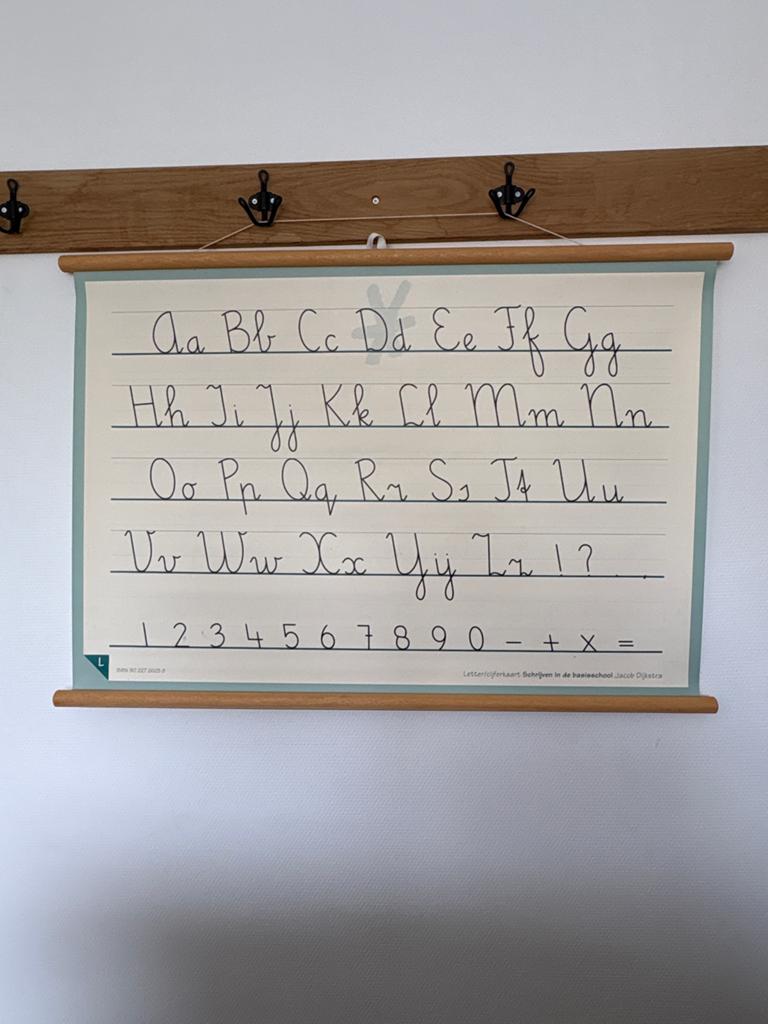 Aa Bb Cc Dd Ee Ff Gg
Hh Ii Jj Kk Ll Mm Nn
Oo Pp Qq Rr Ss Tt Uu
Vv Ww Xx Yij Zz ! ? .
1 2 3 4 5 6 7 8 9 0 - + x =
L
Letter/cijferkaart Schrijven in de basisschool Jacob Dijkstra